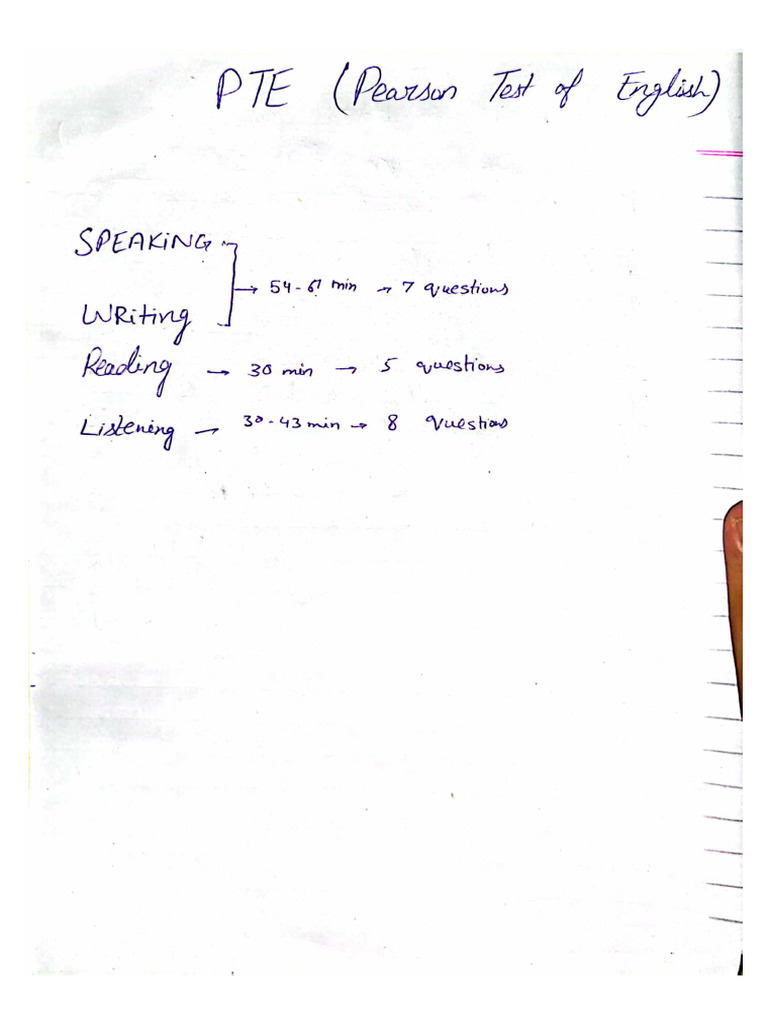 PTE (Pearson Test of English)
SPEAKiNG
→ 54-67 min → 7 questions
WRiting
Reading → 30 min → 5 questions
Listening → 30-43 min → 8 questions